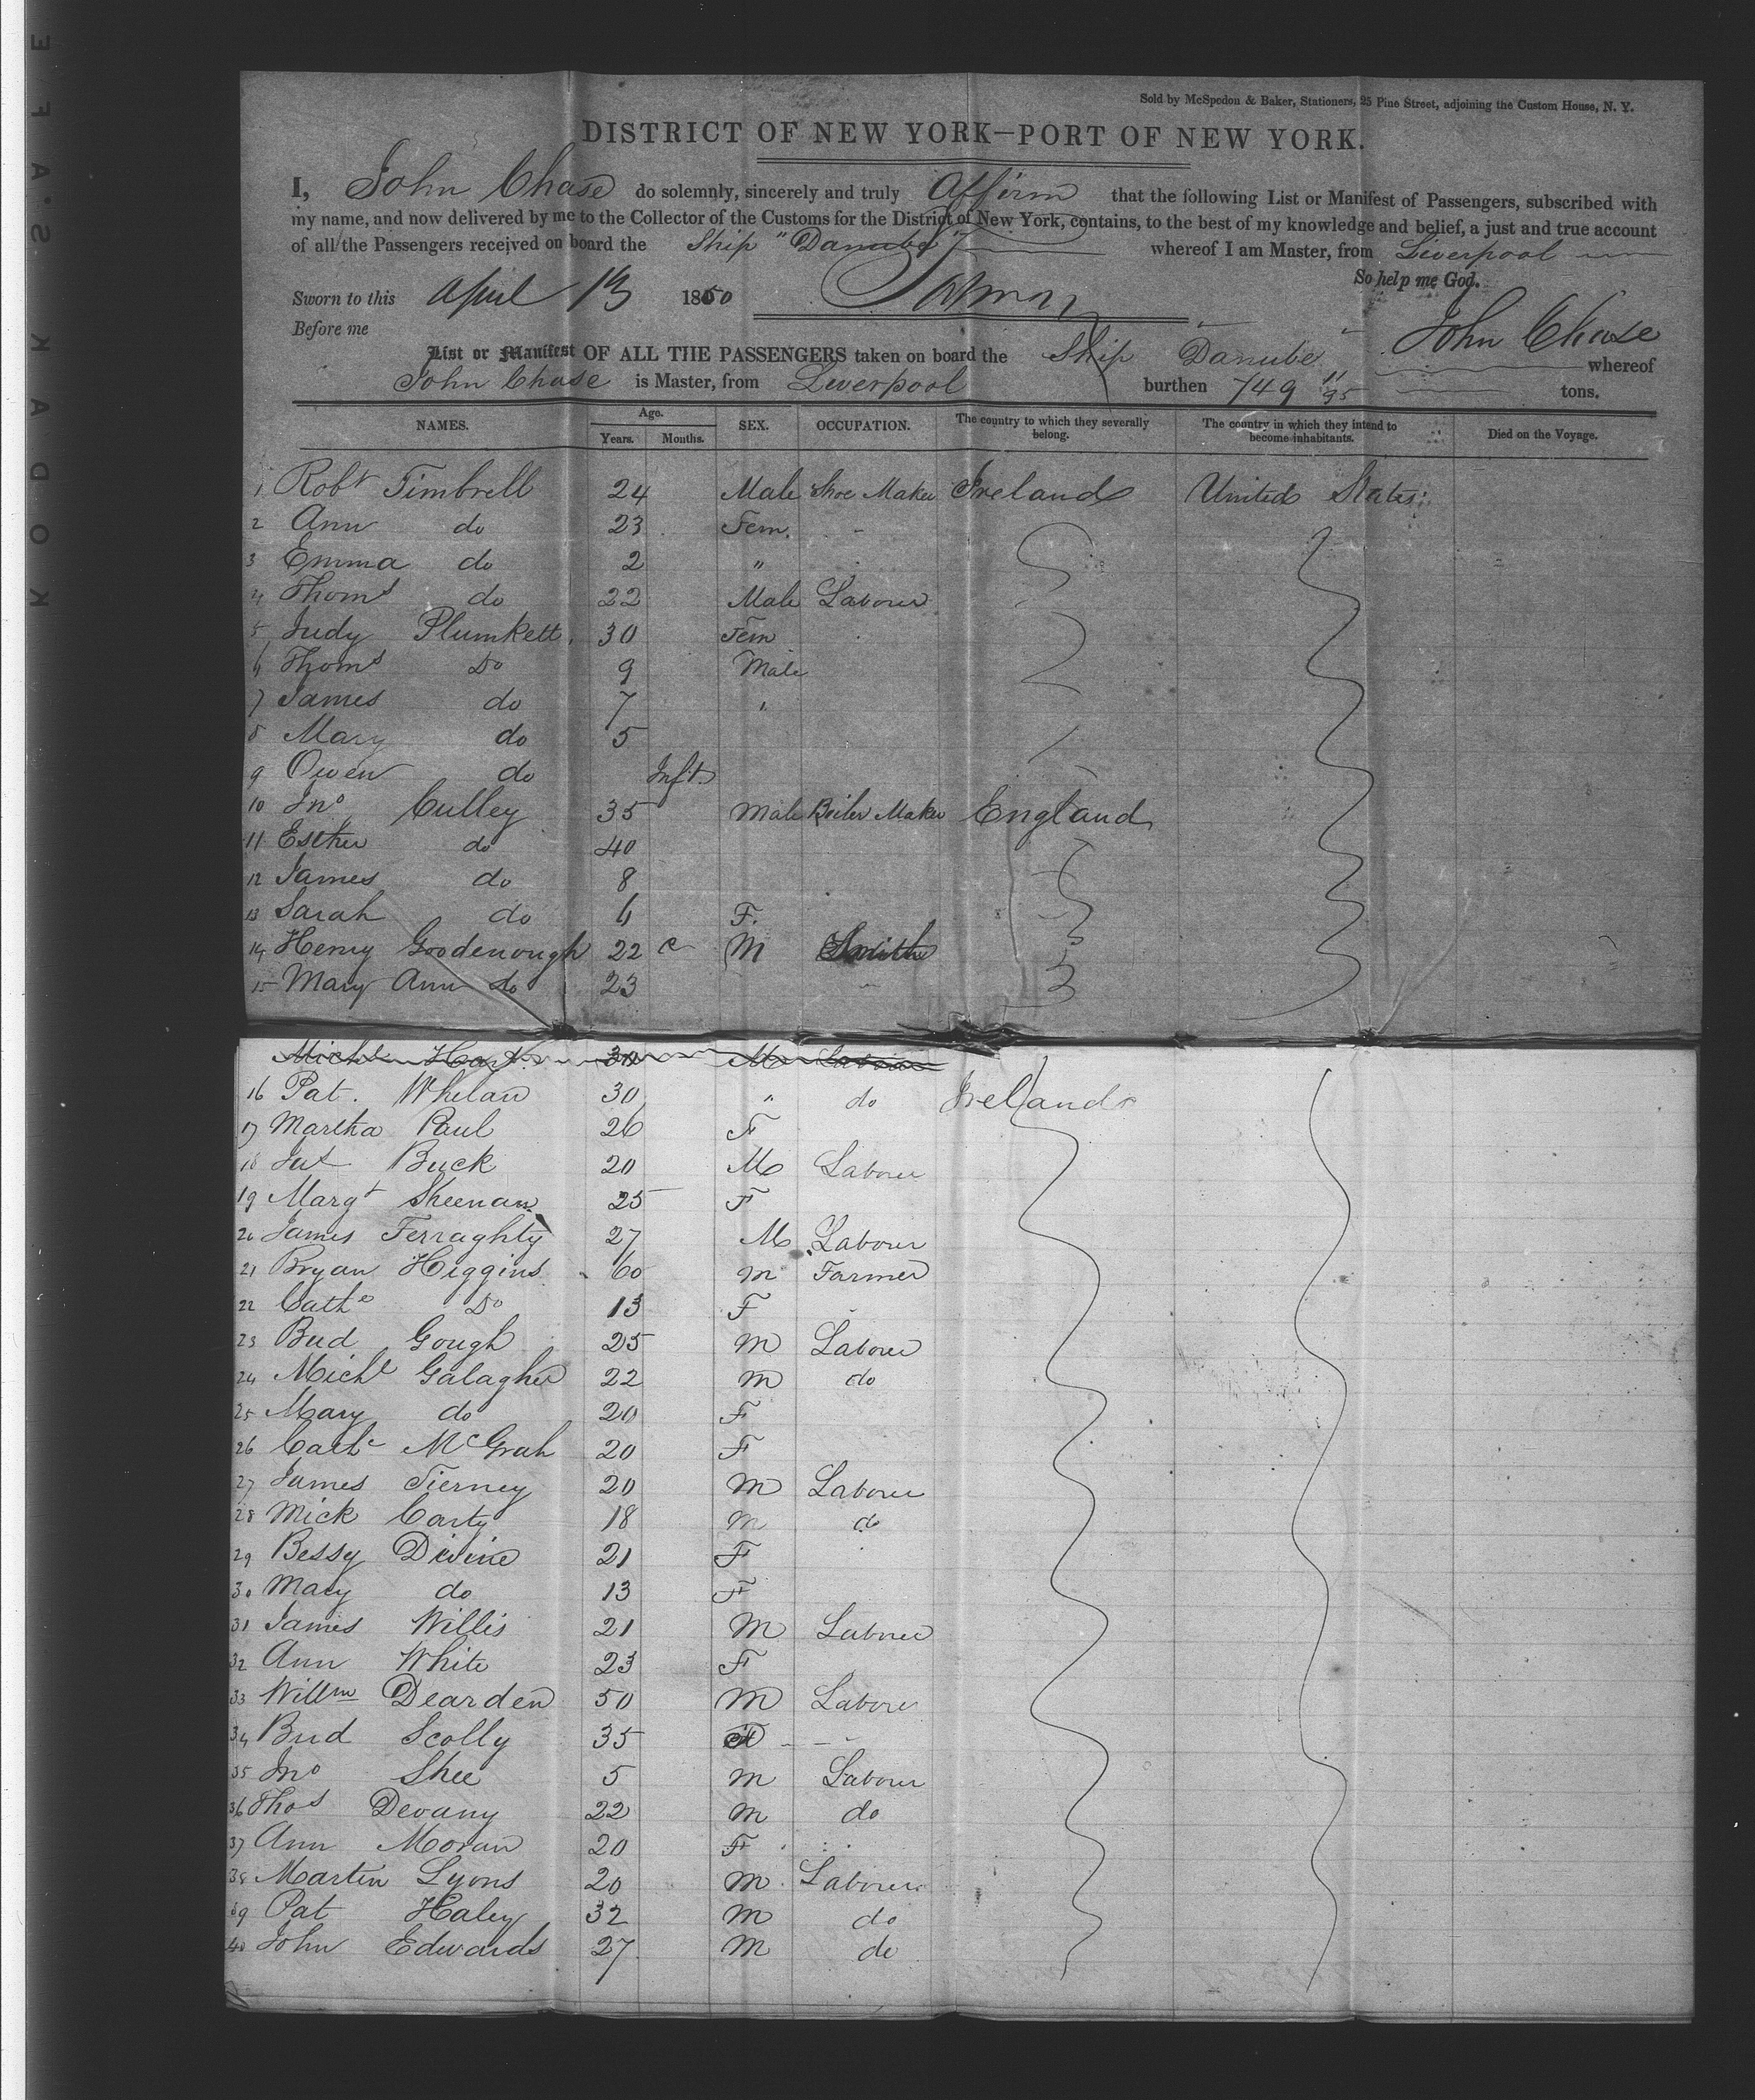 KODAK S.AFE
Sold by McSpedon & Baker, Stationers, 25 Pine Street, adjoining the Custom House, N. Y.
DISTRICT OF NEW YORK—PORT OF NEW YORK.
I, John Chase do solemnly, sincerely and truly Affirm that the following List or Manifest of Passengers, subscribed with
my name, and now delivered by me to the Collector of the Customs for the District of New York, contains, to the best of my knowledge and belief, a just and true account
of all the Passengers received on board the Ship "Danube" whereof I am Master, from Liverpool
So help me God.
Sworn to this April 13 1850
Before me John Chase
List or Manifest OF ALL THE PASSENGERS taken on board the Ship Danube whereof
John Chase is Master, from Liverpool burthen 749 11/95 tons.
NAMES. Age. Years. Months. SEX. OCCUPATION. The country to which they severally belong. The country in which they intend to become inhabitants. Died on the Voyage.
1 Robt Timbrell 24 Male Shoe Maker Ireland United States
2 Ann do 23 Fem. -
3 Emma do 2 "
4 Thoms do 22 Male Labourer
5 Judy Plumkett. 30 Fem
6 Thoms Do 9 Male
7 James do 7 "
8 Mary do 5
9 Owen do Inft.
10 Jno Culley 35 Male Boiler Maker England
11 Esther do 40
12 James do 8
13 Sarah do 4 F.
14 Henry Goodenough 22 M Smith
15 Mary Ann do 23
Michl 30 M Labourer
16 Pat. Whelan 30 " do Ireland
17 Martha Paul 26 F
18 Jas Buck 20 M Labourer
19 Margt Sheenan 25 F
20 James Ferraghty 27 M Labourer
21 Bryan Higgins 60 M Farmer
22 Cathe Do 13 F
23 Bud Gough 25 M Labourer
24 Michl Galagher 22 M do
25 Mary do 20 F
26 Cathe McGrah 20 F
27 James Tierney 20 M Labourer
28 Mick Carty 18 M do
29 Bessy Divine 21 F
30 Mary do 13 F
31 James Willis 21 M Labourer
32 Ann White 23 F
33 Willm Dearden 50 M Labourer
34 Bud Scolly 35 - -
35 Jno Shee 5 M Labourer
36 Thos Devany 22 M do
37 Ann Moran 20 F
38 Martin Lyons 20 M Labourer
39 Pat Haley 32 M do
40 John Edwards 27 M do